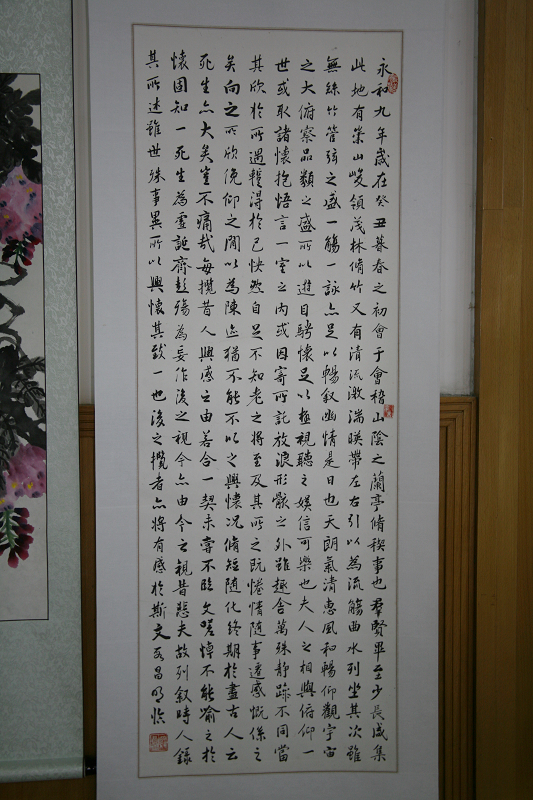 永和九年歲在癸丑暮春之初會于會稽山陰之蘭亭脩稧事也羣賢畢至少長咸集
此地有崇山峻領茂林脩竹又有清流激湍暎帶左右引以為流觴曲水列坐其次雖
無絲竹管弦之盛一觴一詠亦足以暢叙幽情是日也天朗氣清惠風和暢仰觀宇宙
之大俯察品類之盛所以遊目騁懷足以極視聽之娛信可樂也夫人之相與俯仰一
世或取諸懷抱悟言一室之內或因寄所託放浪形骸之外雖趣舍萬殊靜躁不同當
其欣於所遇蹔得於己怏然自足不知老之將至及其所之既惓情隨事遷感慨係之
矣向之所欣俛仰之閒以為陳迹猶不能不以之興懷況脩短隨化終期於盡古人云
死生亦大矣豈不痛哉每攬昔人興感之由若合一契未嘗不臨文嗟悼不能喻之於
懷固知一死生為虛誕齊彭殤為妄作後之視今亦由今之視昔悲夫故列叙時人錄
其所述雖世殊事異所以興懷其致一也後之攬者亦將有感於斯文